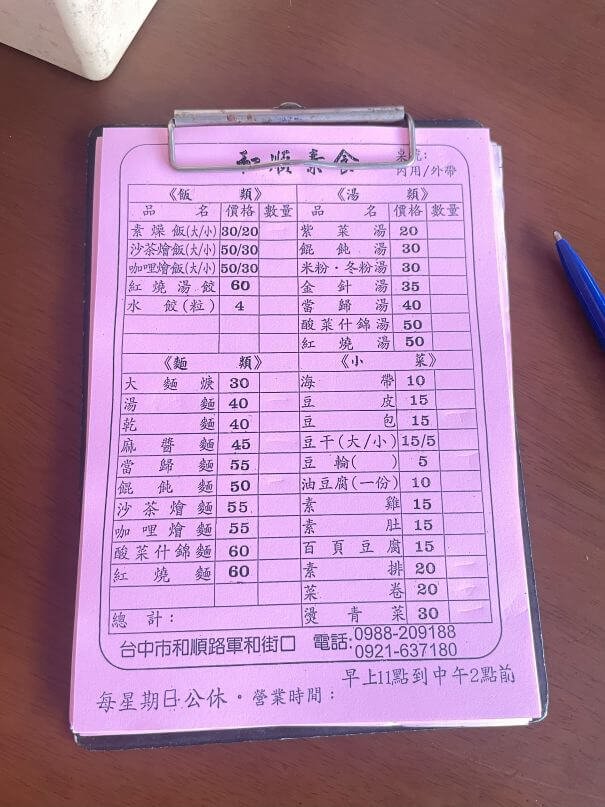 和順素食
桌號:
內用/外帶
《飯類》
品名 價格 數量
素燥飯(大/小) 30/20
沙茶燴飯(大/小) 50/30
咖哩燴飯(大/小) 50/30
紅燒湯餃 60
水餃(粒) 4
《湯類》
品名 價格 數量
紫菜湯 20
餛飩湯 30
米粉・冬粉湯 30
金針湯 35
當歸湯 40
酸菜什錦湯 50
紅燒湯 50
《麵類》
大麵焿 30
湯麵 40
乾麵 40
麻醬麵 45
當歸麵 55
餛飩麵 50
沙茶燴麵 55
咖哩燴麵 55
酸菜什錦麵 60
紅燒麵 60
《小菜》
海帶 10
豆皮 15
豆包 15
豆干(大/小) 15/5
豆輪( ) 5
油豆腐(一份) 10
素雞 15
素肚 15
百頁豆腐 15
素排 20
菜卷 20
燙青菜 30
總計:
台中市和順路軍和街口 電話:0988-209188
0921-637180
早上11點到中午2點前
每星期日公休。營業時間: